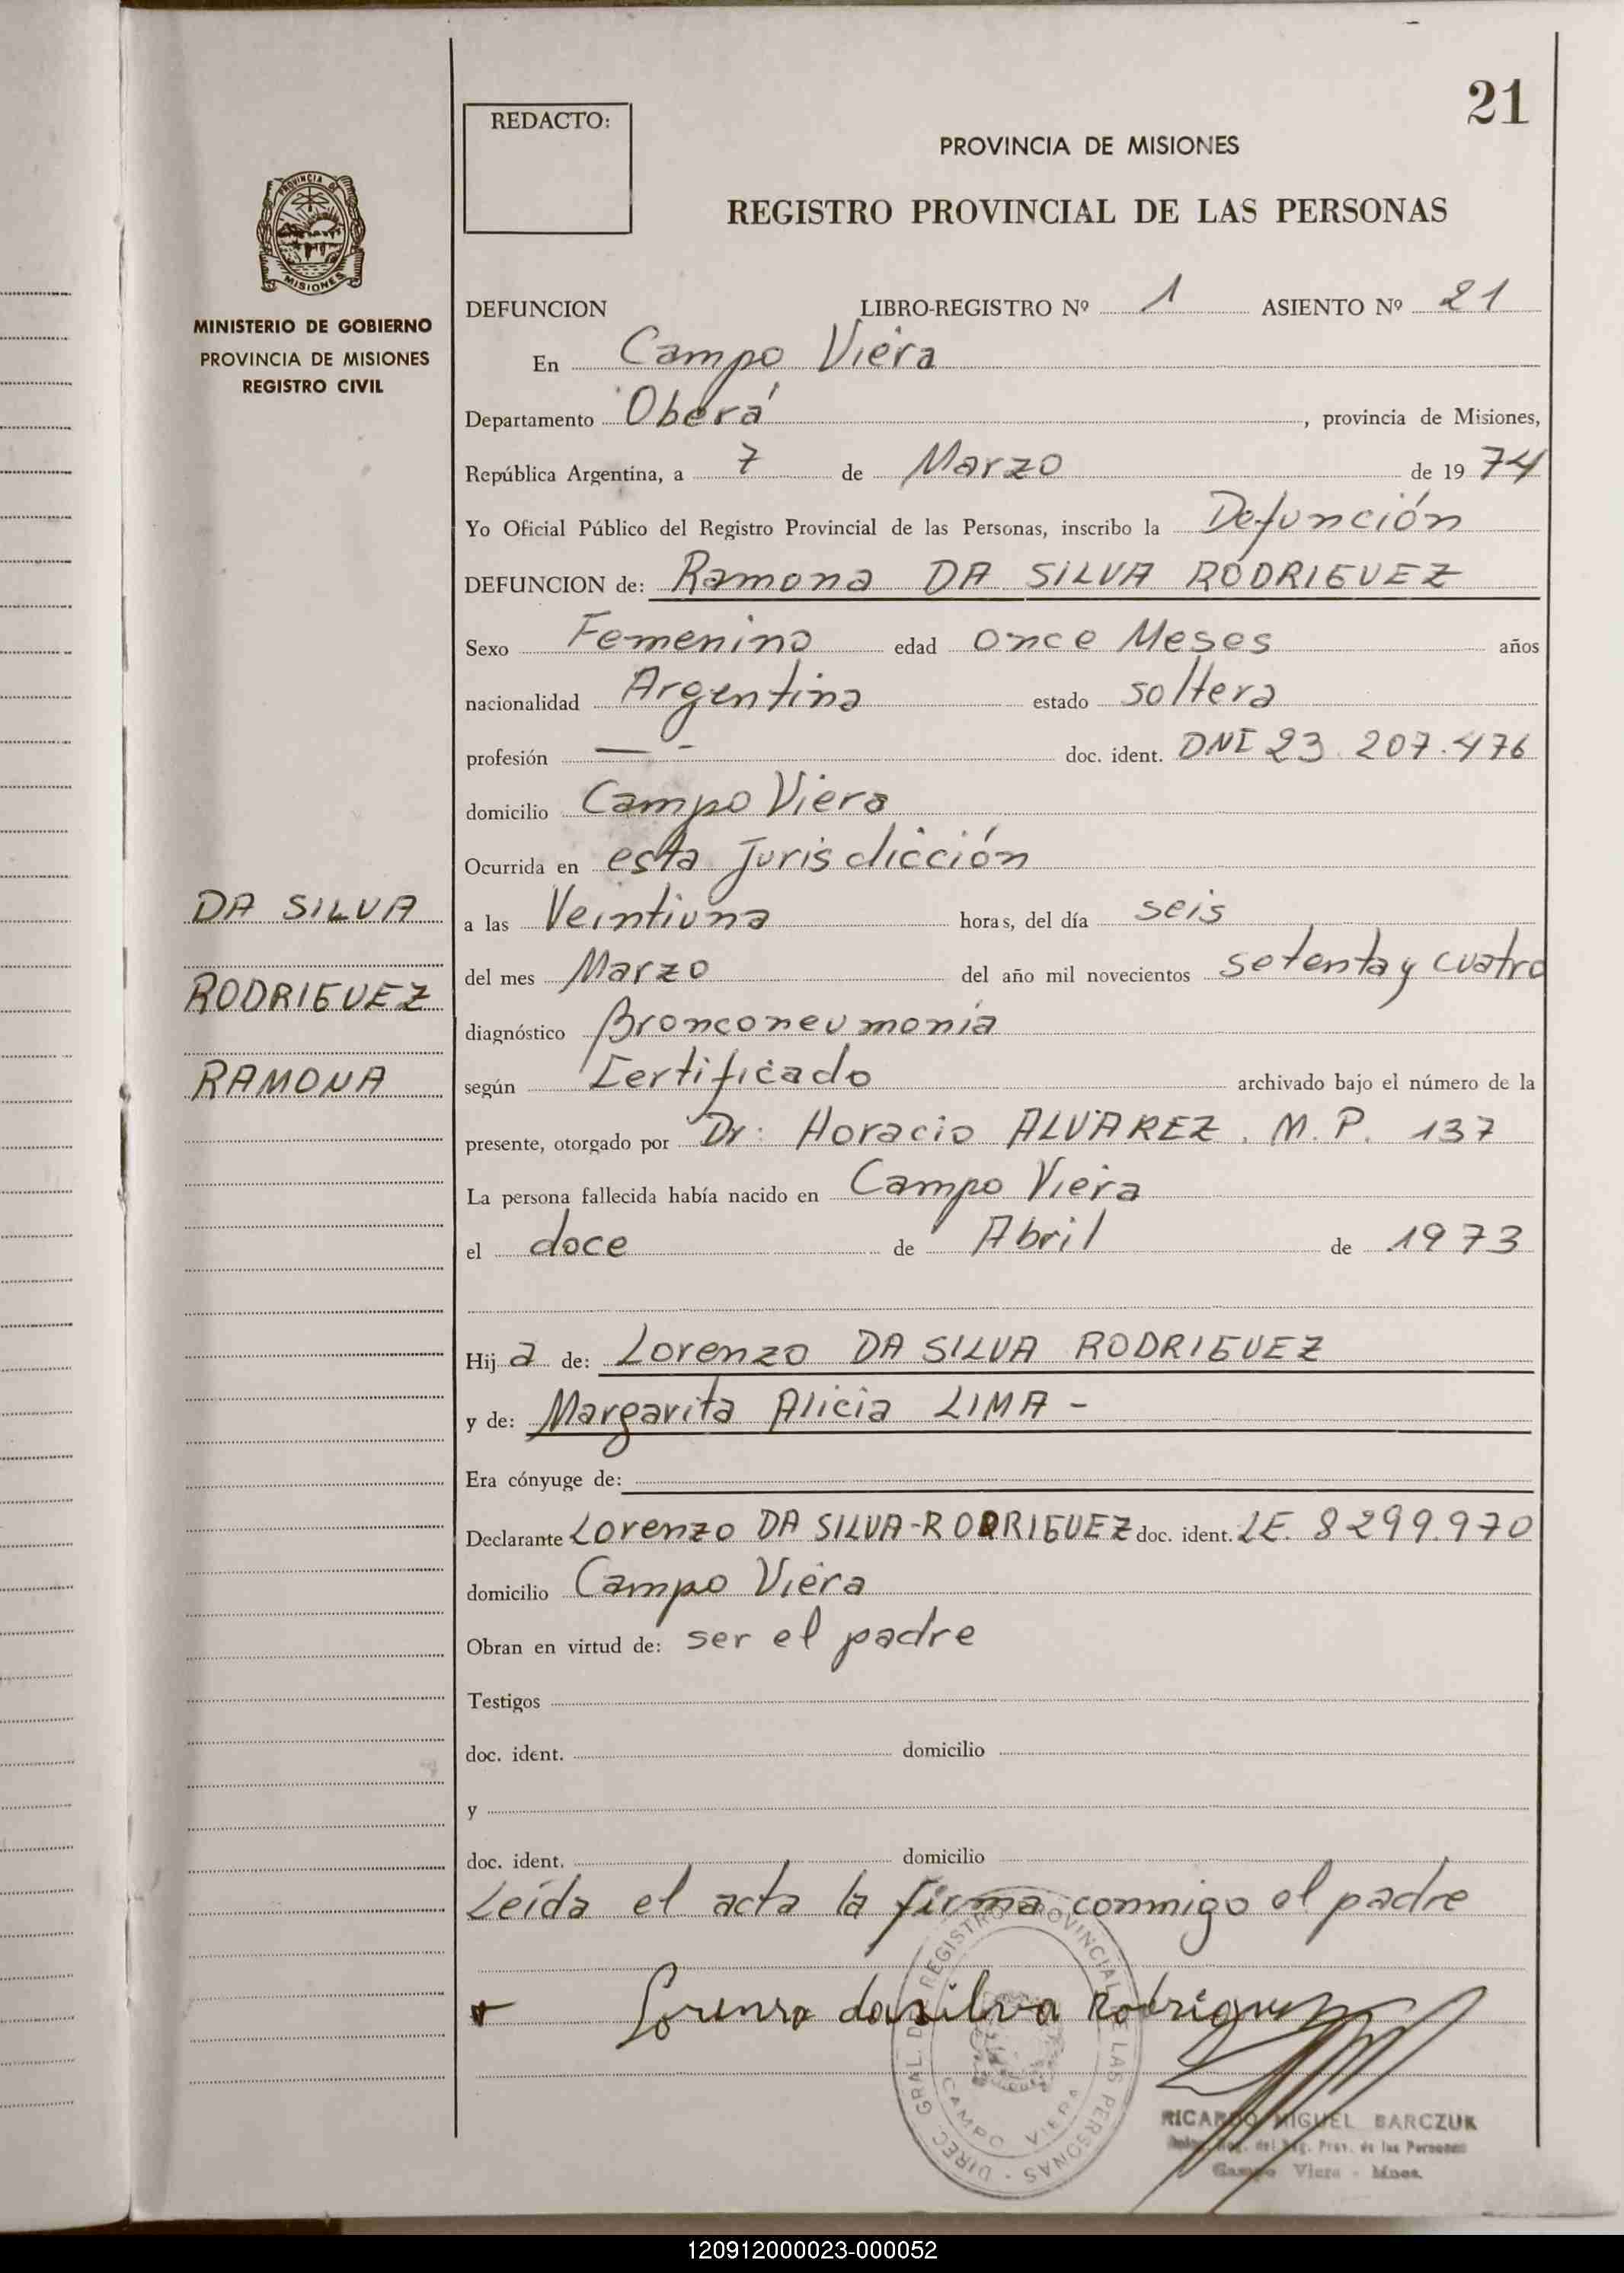 21
REDACTO:
PROVINCIA DE MISIONES
REGISTRO PROVINCIAL DE LAS PERSONAS
PROVINCIA DE
MISIONES
MINISTERIO DE GOBIERNO
PROVINCIA DE MISIONES
REGISTRO CIVIL
DEFUNCION LIBRO-REGISTRO Nº 1 ASIENTO Nº 21
En Campo Viera
Departamento Oberá, provincia de Misiones,
República Argentina, a 7 de Marzo de 1974
Yo Oficial Público del Registro Provincial de las Personas, inscribo la Defunción
DEFUNCION de: Ramona DA SILVA RODRIGUEZ
Sexo Femenino edad once Meses años
nacionalidad Argentina estado soltera
profesión — - doc. ident. DNI 23.207.476
domicilio Campo Viera
Ocurrida en esta Jurisdicción
DA SILVA
a las Veintiuna horas, del día seis
del mes Marzo del año mil novecientos setenta y cuatro
RODRIGUEZ
diagnóstico Bronconeumonía
RAMONA
según Certificado archivado bajo el número de la
presente, otorgado por Dr: Horacio ALVAREZ. M.P. 137
La persona fallecida había nacido en Campo Viera
el doce de Abril de 1973
Hija de: Lorenzo DA SILVA RODRIGUEZ
y de: Margarita Alicia LIMA -
Era cónyuge de:
Declarante Lorenzo DA SILVA-RODRIGUEZ doc. ident. LE. 8299.970
domicilio Campo Viera
Obran en virtud de: ser el padre
Testigos
doc. ident. domicilio
y
doc. ident. domicilio
Leída el acta la firma conmigo el padre
Lorenso dasilva Rodriguez
DIREC. GRAL. D REGISTRO PROVINCIAL DE LAS PERSONAS
CAMPO VIERA
RICARDO MIGUEL BARCZUK
del Reg. Prov. de las Personas
Campo Viera - Mnes.
120912000023-000052